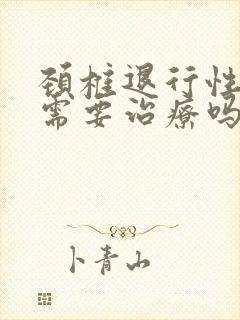 颈椎退行性
需要治疗吗
卜青山